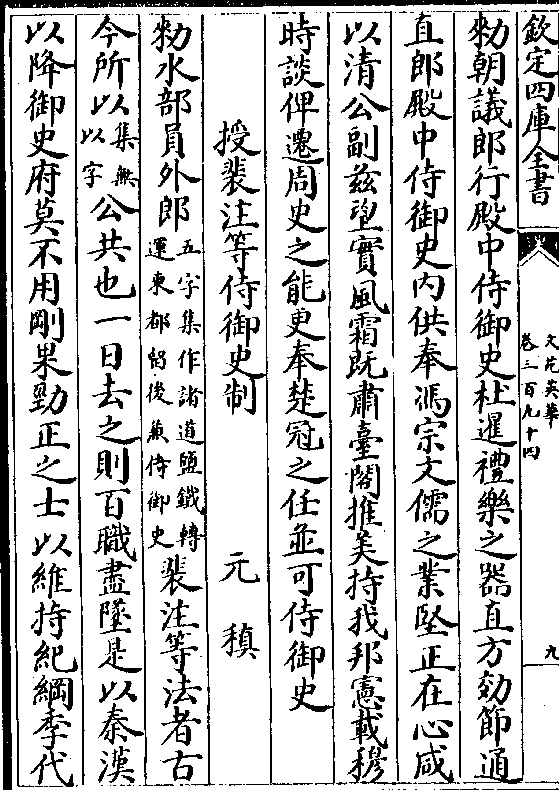 欽定四庫全書
文苑英華
卷三百九十四
九
勑朝議郎行殿中侍御史杜暹禮樂之器直方効節通
直郎殿中侍御史内供奉馮宗文儒之業堅正在心咸
以清公副兹望實風霜既肅臺閣推美持我邦憲載穆
時談俾遷周史之能更奉楚冠之任並可侍御史
授裴注等侍御史制 元稹
勑水部員外郎五字集作諸道鹽鐵轉運東都留後兼侍御史裴注等法者古
今所以集無以字公共也一日去之則百職盡墜是以秦漢
以降御史府莫不用剛果勁正之士以維持紀綱季代